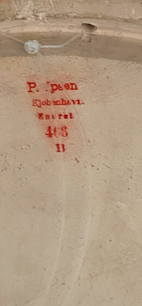 P. Ipsen
Kjøbenhavn.
Eneret
468
11